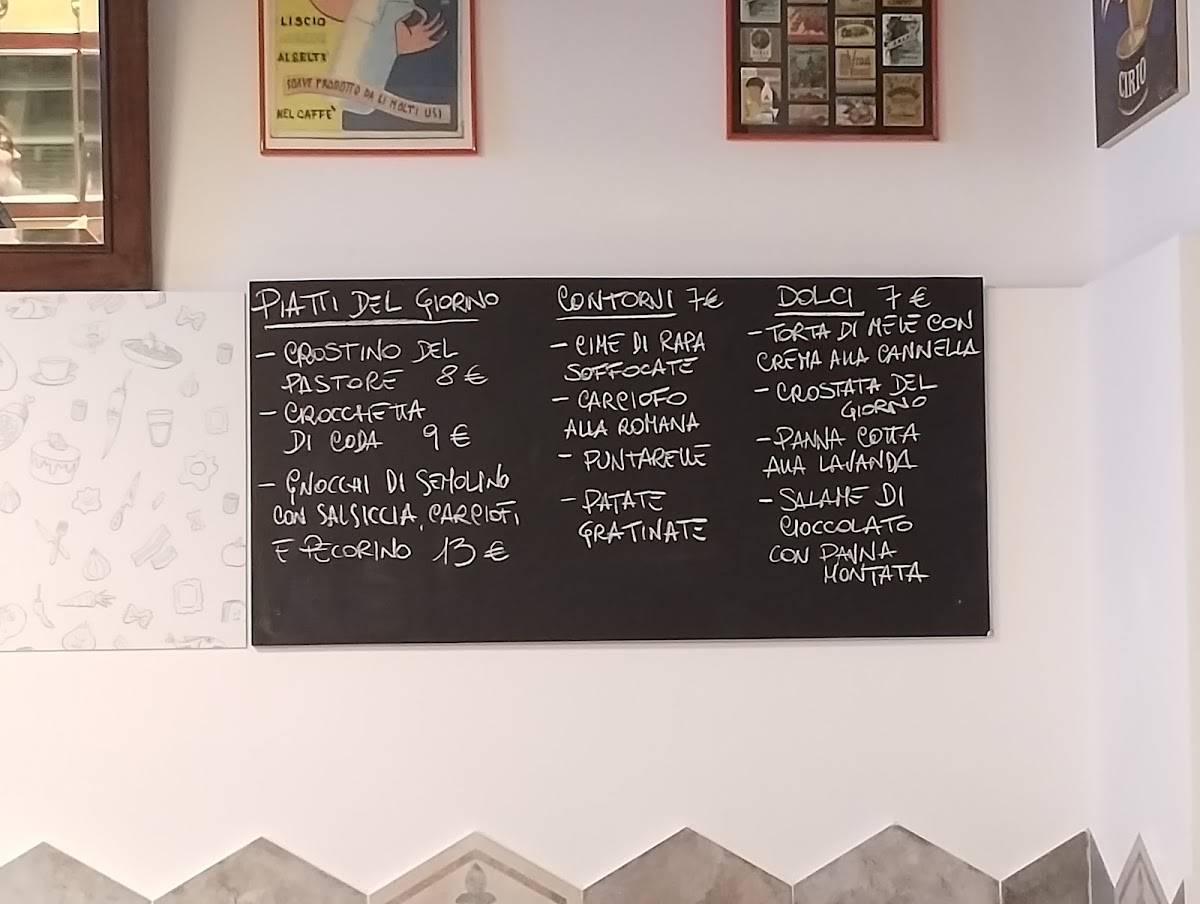 LISCIO
AL SELTZ
SOAVE PRODOTTO DA LI MOLTI USI
NEL CAFFÈ
CIRIO
PIATTI DEL GIORNO
- CROSTINO DEL
PASTORE 8 €
- CROCCHETTA
DI CODA 9 €
- GNOCCHI DI SEMOLINO
CON SALSICCIA, CARCIOFI
E PECORINO 13 €
CONTORNI 7€
- CIME DI RAPA
SOFFOCATE
- CARCIOFO
ALLA ROMANA
- PUNTARELLE
- PATATE
GRATINATE
DOLCI 7 €
- TORTA DI MELE CON
CREMA ALLA CANNELLA
- CROSTATA DEL
GIORNO
- PANNA COTTA
ALLA LAVANDA
- SALAME DI
CIOCCOLATO
CON PANNA
MONTATA